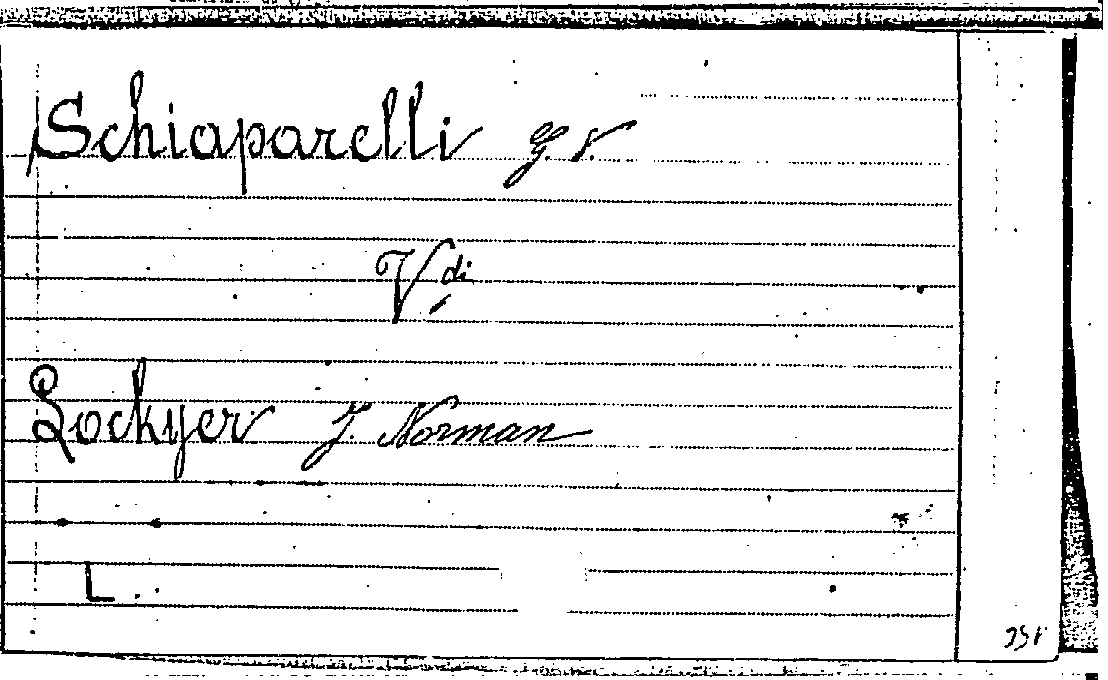 Schiaparelli G. V.
Vdi
Lockyer J. Norman
L